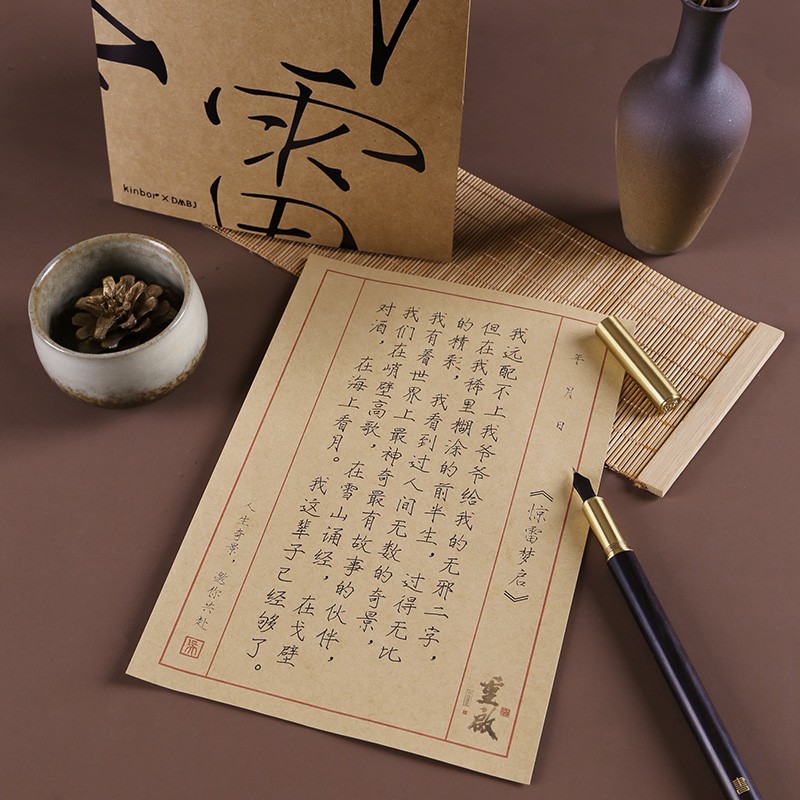 雷
kinbor × DMBJ
年 月 日
《惊雷梦启》
我远配不上我爷爷给我的无邪二字，
但在我稀里糊涂的前半生，过得无比
的精彩，我看到过人间无数的奇景，
我有着世界上最神奇最有故事的伙伴，
我们在峭壁高歌，在雪山诵经，在戈壁
对酒，在海上看月。我这辈子已经够了。
人生奇景，邀你共赴
重启
書